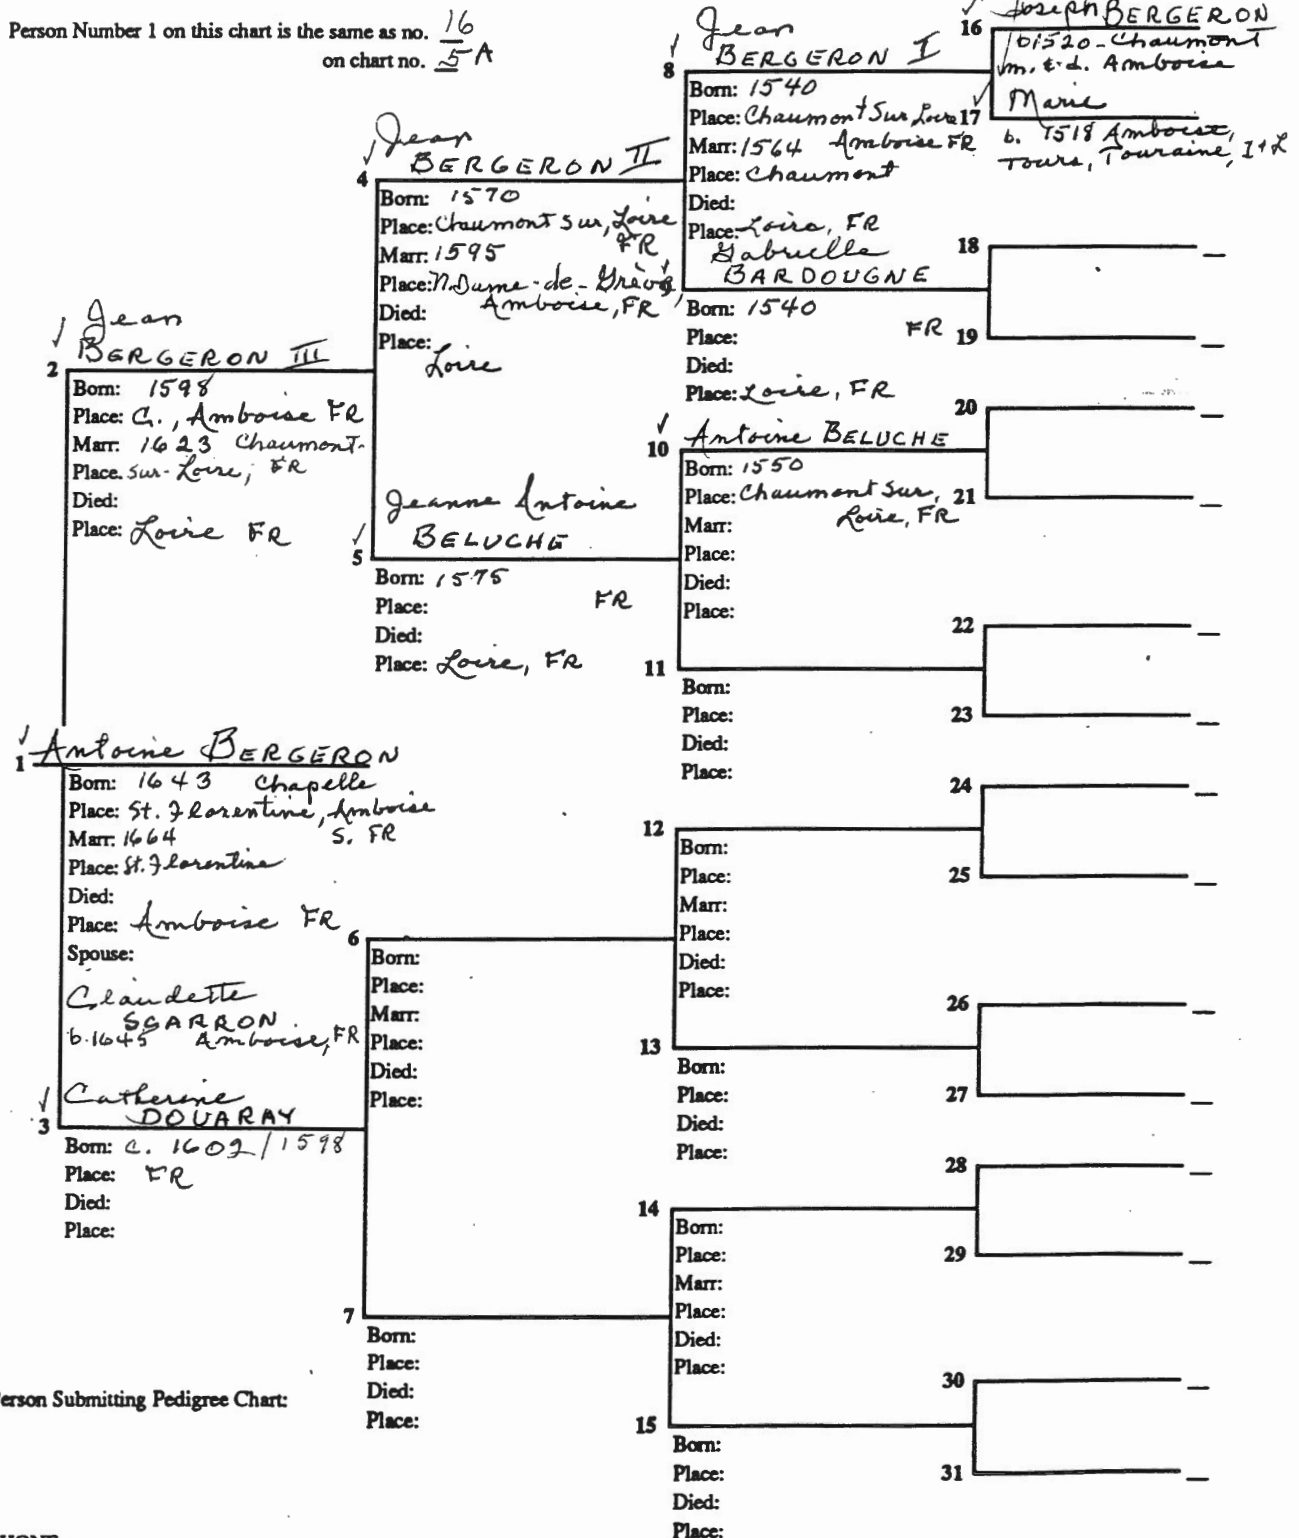 Person Number 1 on this chart is the same as no. 16
on chart no. 5A
1 Antoine BERGERON
Born: 1643 Chapelle
Place: St. Florentine, Amboise
Marr: 1664 S. FR
Place: St. Florentine
Died:
Place: Amboise FR
Spouse:
Claudette
SGARRON
b. 1645 Amboise, FR
2 Jean
BERGERON III
Born: 1598
Place: C., Amboise FR
Marr: 1623 Chaumont-
Place. Sur-Loire, FR
Died:
Place: Loire FR
3 Catherine
DOUARAY
Born: c. 1602/1598
Place: FR
Died:
Place:
4 Jean
BERGERON II
Born: 1570
Place: Chaumont Sur, Loire
FR
Marr: 1595
Place: N Dame-de-Grève,
Died: Amboise, FR
Place:
Loire
5 Jeanne Antoine
BELUCHE
Born: 1575
Place: FR
Died:
Place: Loire, FR
6
Born:
Place:
Marr:
Place:
Died:
Place:
7
Born:
Place:
Died:
Place:
8 Jean
BERGERON I
Born: 1540
Place: Chaumont Sur Loire
Marr: 1564 Amboise FR
Place: Chaumont
Died:
Place: Loire, FR
Gabrielle
BARDOUGNE
Born: 1540
Place: FR
Died:
Place: Loire, FR
10 Antoine BELUCHE
Born: 1550
Place: Chaumont Sur,
Loire, FR
Marr:
Place:
Died:
Place:
11
Born:
Place:
Died:
Place:
12
Born:
Place:
Marr:
Place:
Died:
Place:
13
Born:
Place:
Died:
Place:
14
Born:
Place:
Marr:
Place:
Died:
Place:
15
Born:
Place:
Died:
Place:
16 Joseph BERGERON
b1520-Chaumont
m. & d. Amboise
17 Marie
b. 1518 Amboise,
Tours, Touraine, I+L
18
19
20
21
22
23
24
25
26
27
28
29
30
31
erson Submitting Pedigree Chart: